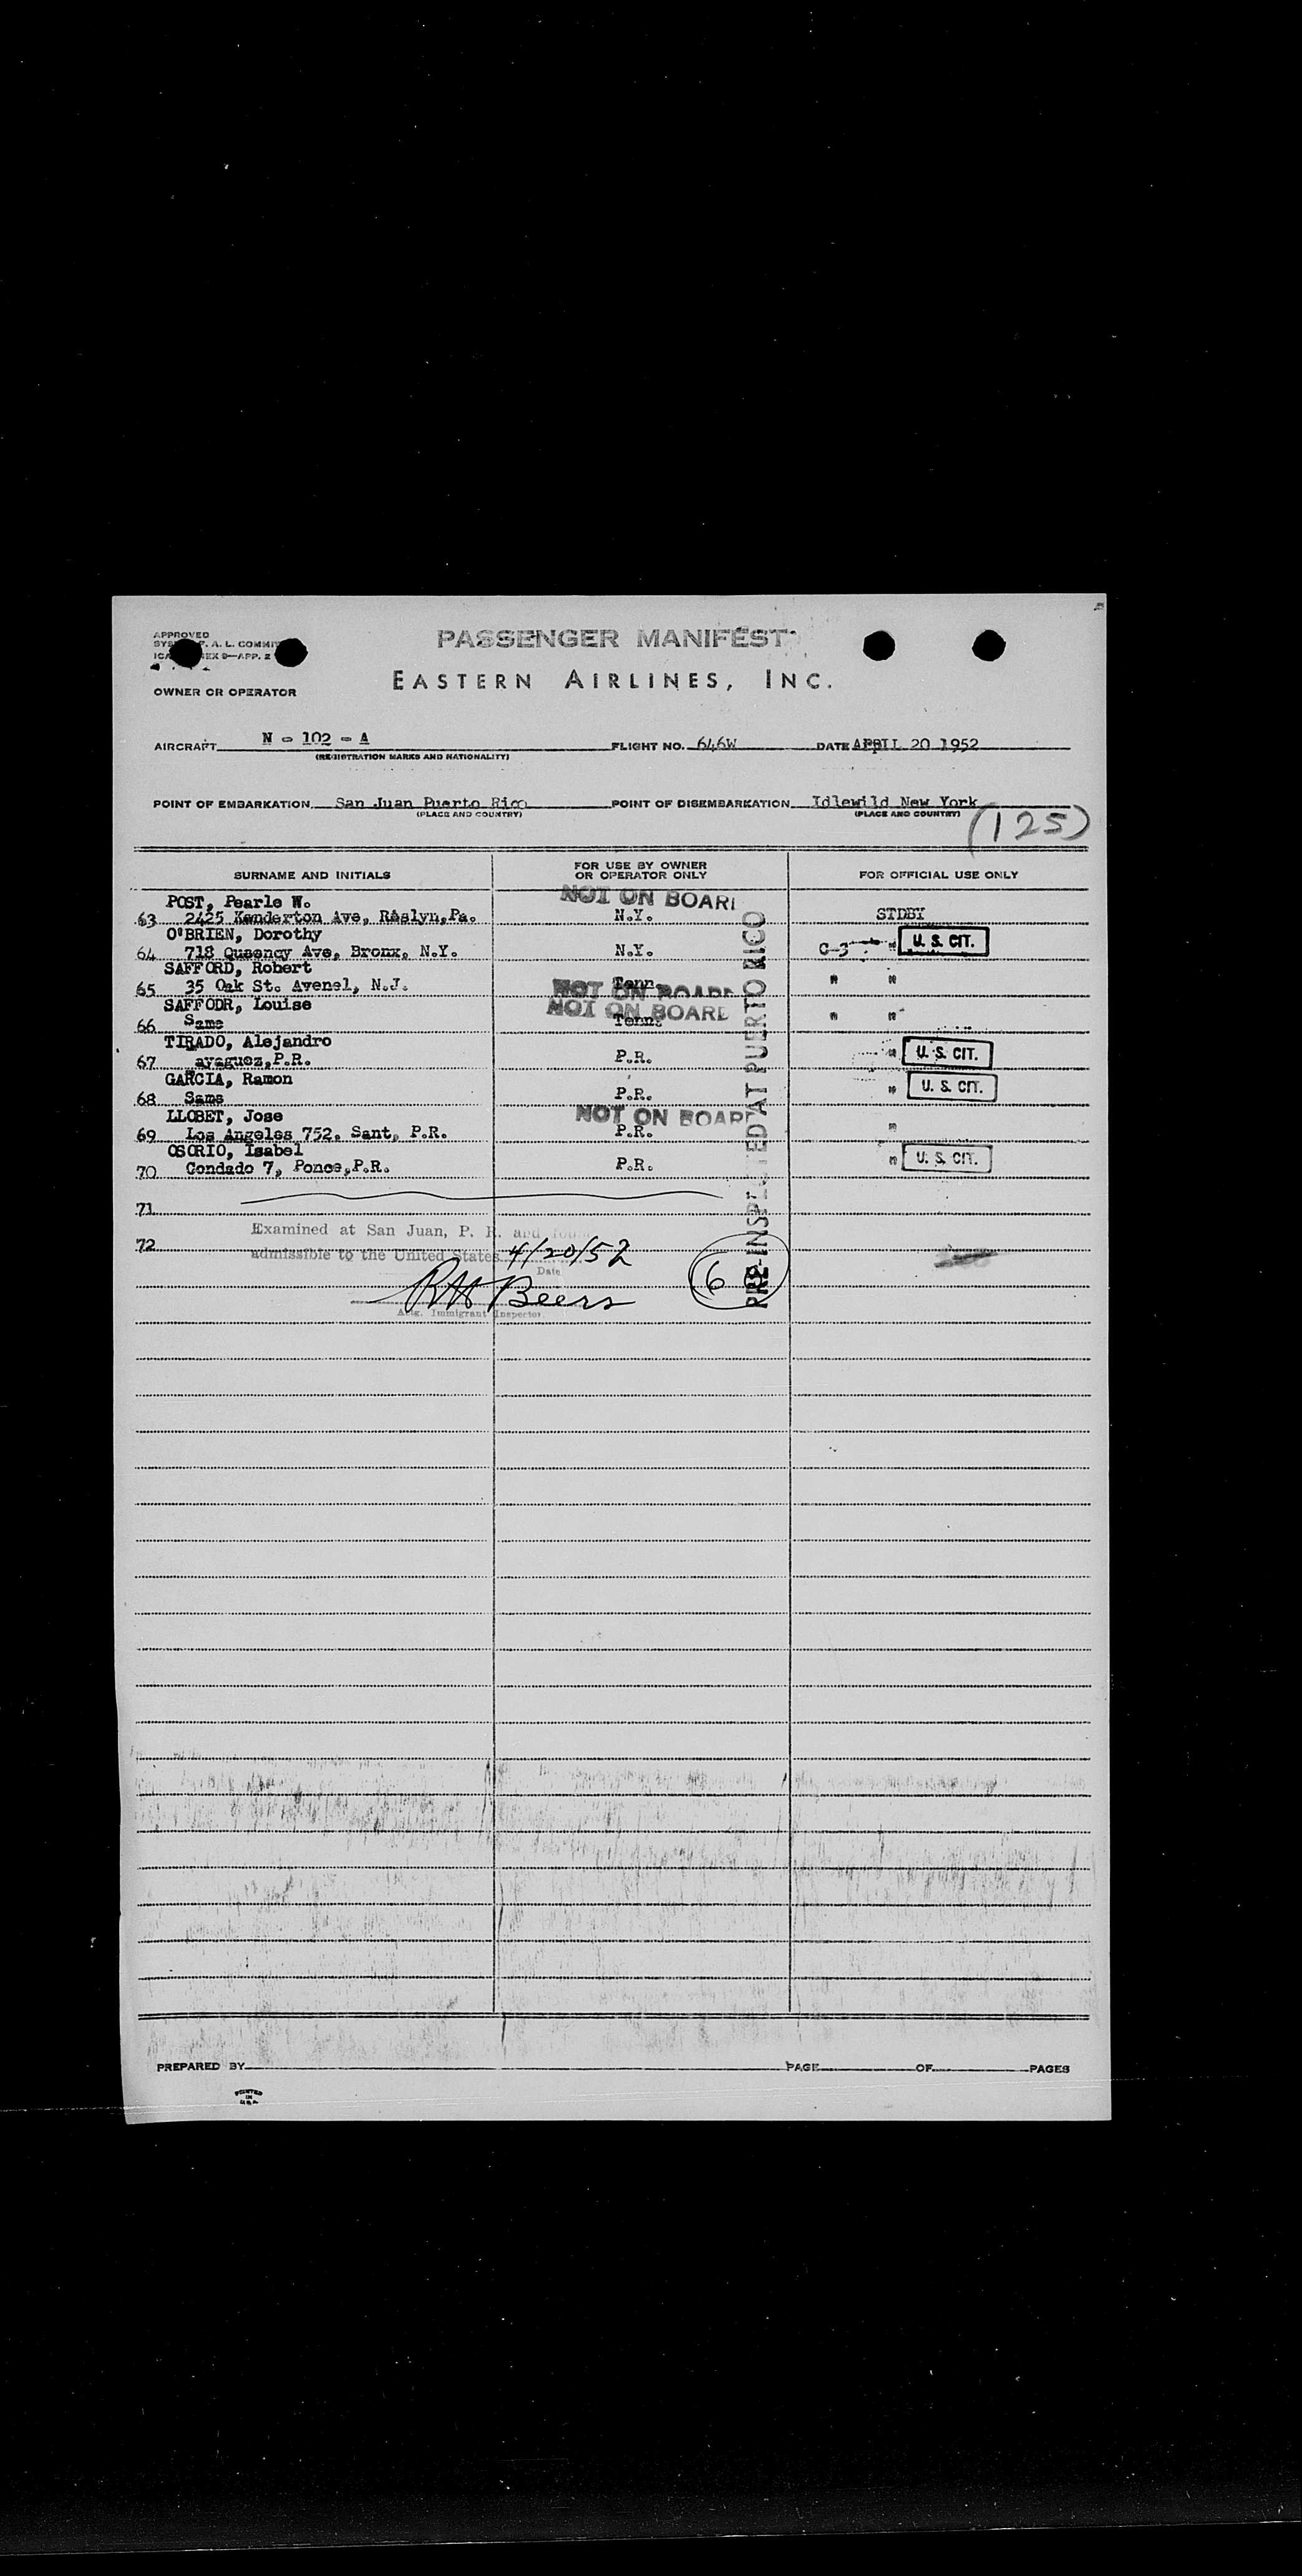 APPROVED
PASSENGER MANIFEST
EASTERN AIRLINES, INC.
OWNER OR OPERATOR
AIRCRAFT N - 102 - A FLIGHT NO. 646W DATE APRIL 20 1952
(REGISTRATION MARKS AND NATIONALITY)
POINT OF EMBARKATION San Juan Puerto Rico POINT OF DISEMBARKATION Idlewild New York
(PLACE AND COUNTRY) (PLACE AND COUNTRY)
(125)
SURNAME AND INITIALS FOR USE BY OWNER OR OPERATOR ONLY FOR OFFICIAL USE ONLY
POST, Pearle W. NOT ON BOARD
63 2425 Kenderton Ave, Roslyn,Pa. N.Y. STDBY
O'BRIEN, Dorothy
64 718 Queency Ave, Bronx, N.Y. N.Y. C-3 " U. S. CIT.
SAFFORD, Robert
65 35 Oak St. Avenel, N.J. Tenn. NOT ON BOARD " "
SAFFODR, Louise NOT ON BOARD
66 Same Tenn. " "
TIRADO, Alejandro
67 ayaguez,P.R. P.R. " U. S. CIT.
GARCIA, Ramon
68 Same P.R. " U. S. CIT.
LLOBET, Jose NOT ON BOARD
69 Los Angeles 752. Sant, P.R. P.R. "
OSORIO, Isabel
70 Condado 7, Ponce,P.R. P.R. " U. S. CIT.
71
72
PRE-INSPECTED AT PUERTO RICO
Examined at San Juan, P. R. and found
admissible to the United States 4/20/52
Date
RH Beers
Immigrant Inspector
6
PREPARED BY PAGE OF PAGES
PRINTED
IN
U.S.A.